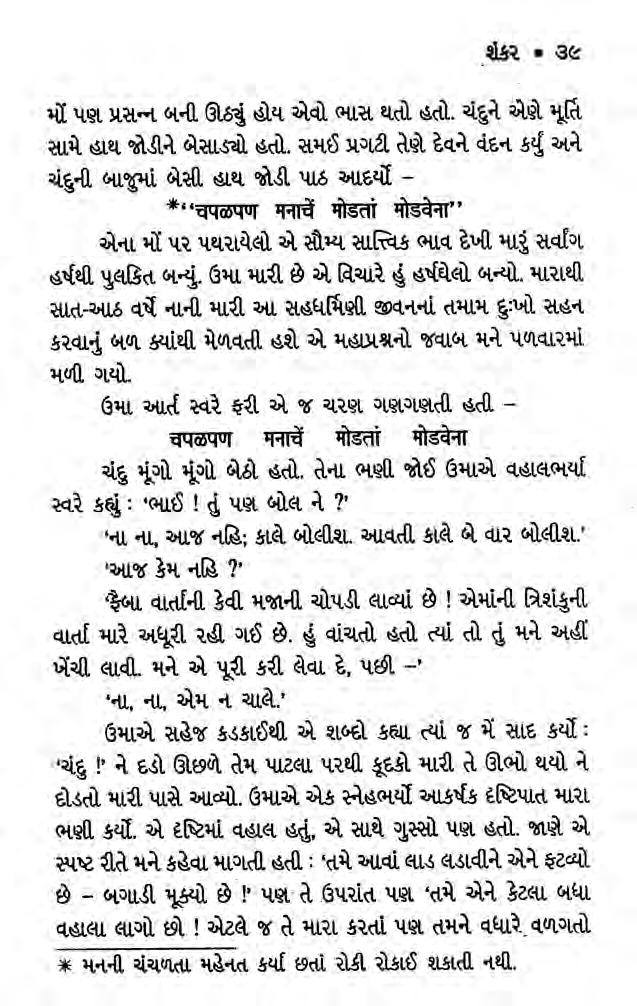 શંકર ▪ ૩૯
મોં પણ પ્રસન્ન બની ઊઠ્યું હોય એવો ભાસ થતો હતો. ચંદુને એણે મૂર્તિ
સામે હાથ જોડીને બેસાડ્યો હતો. સમઈ પ્રગટી તેણે દેવને વંદન કર્યું અને
ચંદુની બાજુમાં બેસી હાથ જોડી પાઠ આદર્યો –
*‘‘चपळपण मनाचें मोडतां मोडवेना’’
એના મોં પર પથરાયેલો એ સૌમ્ય સાત્ત્વિક ભાવ દેખી મારું સર્વાંગ
હર્ષથી પુલકિત બન્યું. ઉમા મારી છે એ વિચારે હું હર્ષઘેલો બન્યો. મારાથી
સાત-આઠ વર્ષે નાની મારી આ સહધર્મિણી જીવનનાં તમામ દુઃખો સહન
કરવાનું બળ ક્યાંથી મેળવતી હશે એ મહાપ્રશ્નનો જવાબ મને પળવારમાં
મળી ગયો.
ઉમા આર્ત સ્વરે ફરી એ જ ચરણ ગણગણતી હતી –
चपळपण मनाचें मोडतां मोडवेना
ચંદુ મૂંગો મૂંગો બેઠો હતો. તેના ભણી જોઈ ઉમાએ વહાલભર્યા
સ્વરે કહ્યું : ‘ભાઈ ! તું પણ બોલ ને ?’
‘ના ના, આજ નહિ; કાલે બોલીશ. આવતી કાલે બે વાર બોલીશ.’
‘આજ કેમ નહિ ?’
‘ફૈબા વાર્તાની કેવી મજાની ચોપડી લાવ્યાં છે ! એમાંની ત્રિશંકુની
વાર્તા મારે અધૂરી રહી ગઈ છે. હું વાંચતો હતો ત્યાં તો તું મને અહીં
ખેંચી લાવી. મને એ પૂરી કરી લેવા દે, પછી –’
‘ના, ના, એમ ન ચાલે.’
ઉમાએ સહેજ કડકાઈથી એ શબ્દો કહ્યા ત્યાં જ મેં સાદ કર્યો :
‘ચંદુ !’ ને દડો ઊછળે તેમ પાટલા પરથી કૂદકો મારી તે ઊભો થયો ને
દોડતો મારી પાસે આવ્યો. ઉમાએ એક સ્નેહભર્યો આકર્ષક દૃષ્ટિપાત મારા
ભણી કર્યો. એ દૃષ્ટિમાં વહાલ હતું, એ સાથે ગુસ્સો પણ હતો. જાણે એ
સ્પષ્ટ રીતે મને કહેવા માગતી હતી : ‘તમે આવાં લાડ લડાવીને એને ફટવ્યો
છે – બગાડી મૂક્યો છે !’ પણ તે ઉપરાંત પણ ‘તમે એને કેટલા બધા
વહાલા લાગો છો ! એટલે જ તે મારા કરતાં પણ તમને વધારે વળગતો
* મનની ચંચળતા મહેનત કર્યા છતાં રોકી રોકાઈ શકાતી નથી.